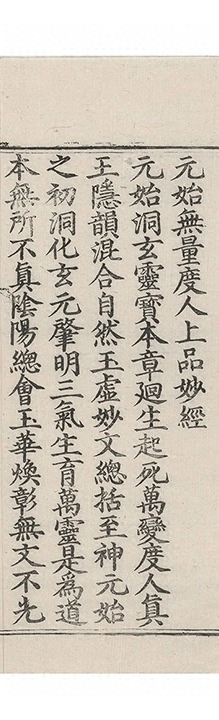 元始無量度人上品妙經
元始洞玄靈寶本章廻生起死萬變度人眞
王隱韻混合自然玉虛妙文總括至神元始
之初洞化玄元肇明三氣生育萬靈是爲道
本無所不眞陰陽總會玉華煥彰無文不光